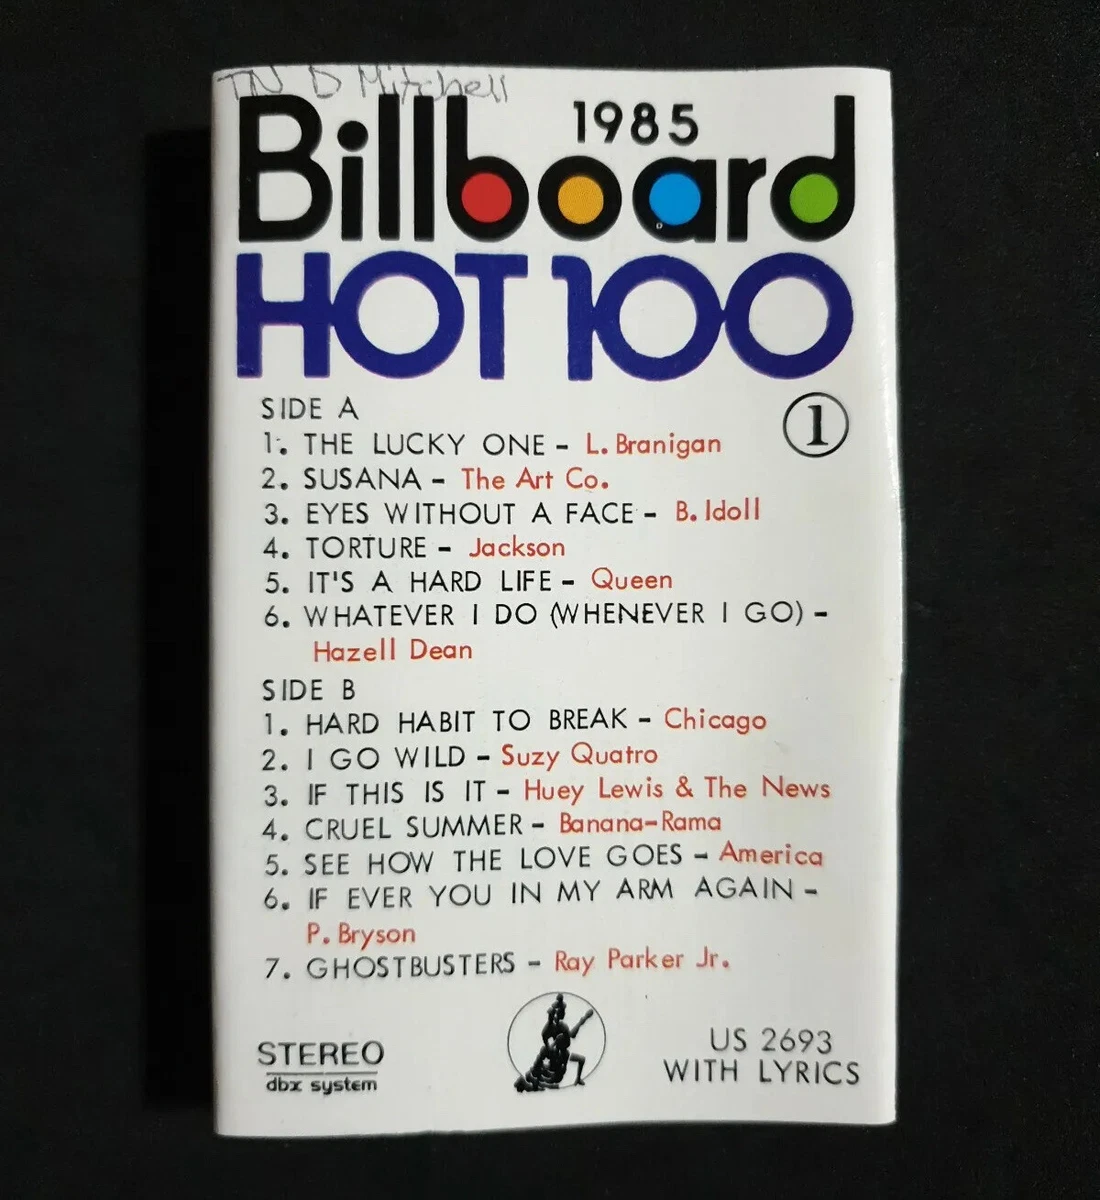 TN D Mitchell
1985
Billboard
HOT 100
1
SIDE A
1. THE LUCKY ONE - L. Branigan
2. SUSANA - The Art Co.
3. EYES WITHOUT A FACE - B. Idoll
4. TORTURE - Jackson
5. IT'S A HARD LIFE - Queen
6. WHATEVER I DO (WHENEVER I GO) -
Hazell Dean
SIDE B
1. HARD HABIT TO BREAK - Chicago
2. I GO WILD - Suzy Quatro
3. IF THIS IS IT - Huey Lewis & The News
4. CRUEL SUMMER - Banana-Rama
5. SEE HOW THE LOVE GOES - America
6. IF EVER YOU IN MY ARM AGAIN -
P. Bryson
7. GHOSTBUSTERS - Ray Parker Jr.
STEREO
dbx system
US 2693
WITH LYRICS